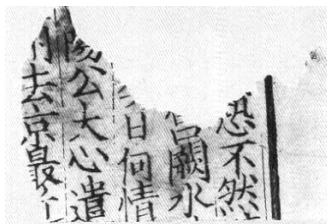 恐不然
闕水
日何情
公大心遣
去京最